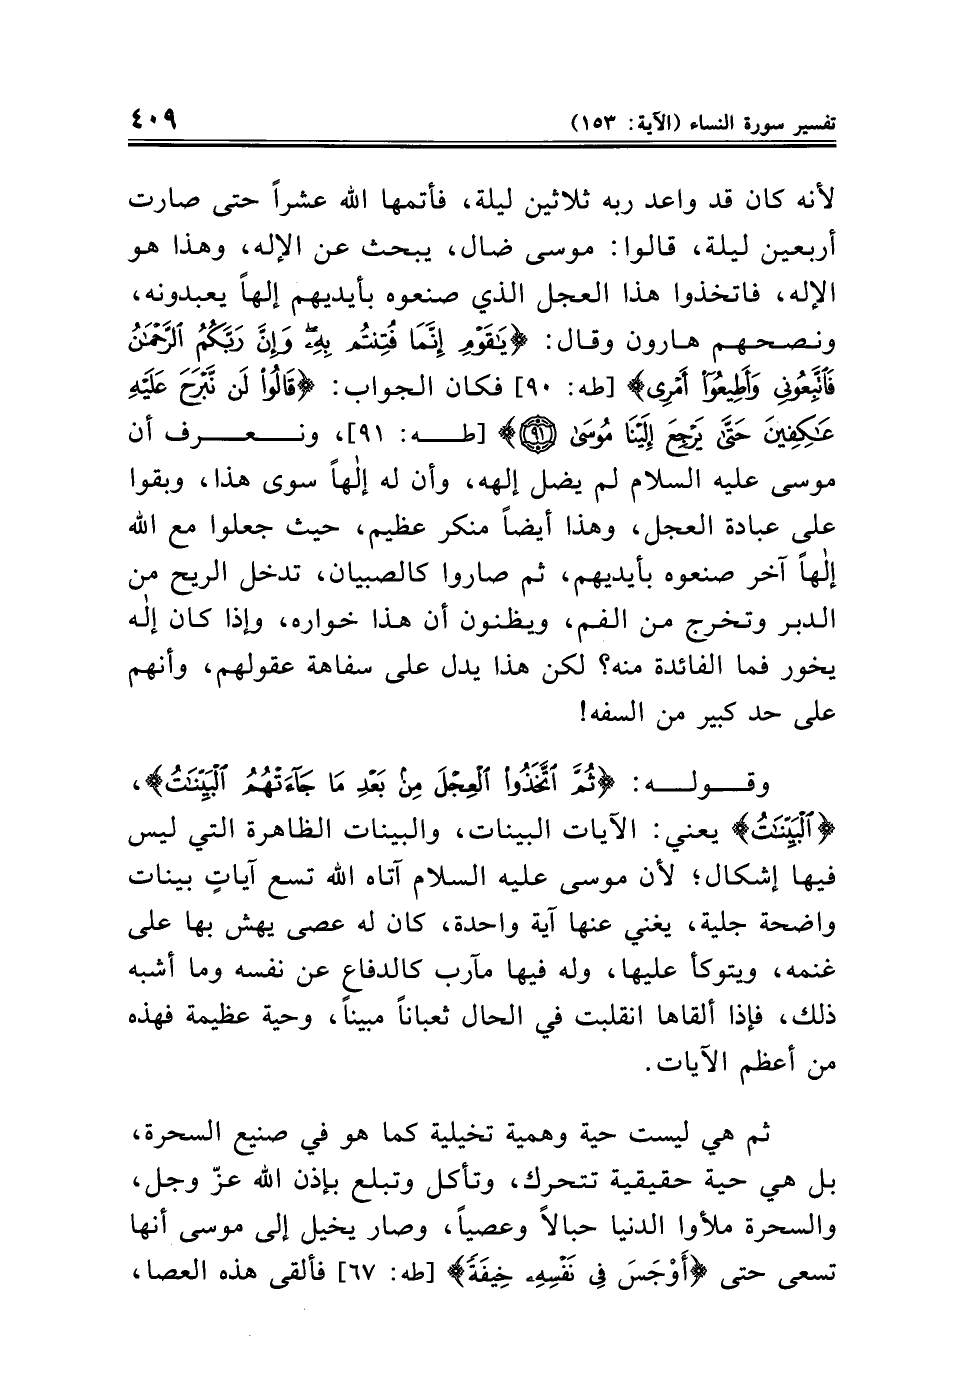 تفسير سورة النساء (الآية: ١٥٣) ٤٠٩
لأنه كان قد واعد ربه ثلاثين ليلة، فأتمها الله عشراً حتى صارت
أربعين ليلة، قالوا: موسى ضال، يبحث عن الإله، وهذا هو
الإله، فاتخذوا هذا العجل الذي صنعوه بأيديهم إلهاً يعبدونه،
ونصحهم هارون وقال: ﴿يَٰقَوْمِ إِنَّمَا فُتِنتُم بِهِۦۖ وَإِنَّ رَبَّكُمُ ٱلرَّحْمَٰنُ
فَٱتَّبِعُونِى وَأَطِيعُوٓا۟ أَمْرِى﴾ [طه: ٩٠] فكان الجواب: ﴿قَالُوا۟ لَن نَّبْرَحَ عَلَيْهِ
عَٰكِفِينَ حَتَّىٰ يَرْجِعَ إِلَيْنَا مُوسَىٰ ٩١﴾ [طه: ٩١]، ونعرف أن
موسى عليه السلام لم يضل إلهه، وأن له إلٰهاً سوى هذا، وبقوا
على عبادة العجل، وهذا أيضاً منكر عظيم، حيث جعلوا مع الله
إلٰهاً آخر صنعوه بأيديهم، ثم صاروا كالصبيان، تدخل الريح من
الدبر وتخرج من الفم، ويظنون أن هذا خواره، وإذا كان إلٰه
يخور فما الفائدة منه؟ لكن هذا يدل على سفاهة عقولهم، وأنهم
على حد كبير من السفه!
وقوله: ﴿ثُمَّ ٱتَّخَذُوا۟ ٱلْعِجْلَ مِنۢ بَعْدِ مَا جَآءَتْهُمُ ٱلْبَيِّنَٰتُ﴾،
﴿ٱلْبَيِّنَٰتُ﴾ يعني: الآيات البينات، والبينات الظاهرة التي ليس
فيها إشكال؛ لأن موسى عليه السلام آتاه الله تسع آياتٍ بينات
واضحة جلية، يغني عنها آية واحدة، كان له عصى يهش بها على
غنمه، ويتوكأ عليها، وله فيها مآرب كالدفاع عن نفسه وما أشبه
ذلك، فإذا ألقاها انقلبت في الحال ثعباناً مبيناً، وحية عظيمة فهذه
من أعظم الآيات.
ثم هي ليست حية وهمية تخيلية كما هو في صنيع السحرة،
بل هي حية حقيقية تتحرك، وتأكل وتبلع بإذن الله عزّ وجل،
والسحرة ملأوا الدنيا حبالاً وعصياً، وصار يخيل إلى موسى أنها
تسعى حتى ﴿أَوْجَسَ فِى نَفْسِهِۦ خِيفَةً﴾ [طه: ٦٧] فألقى هذه العصا،